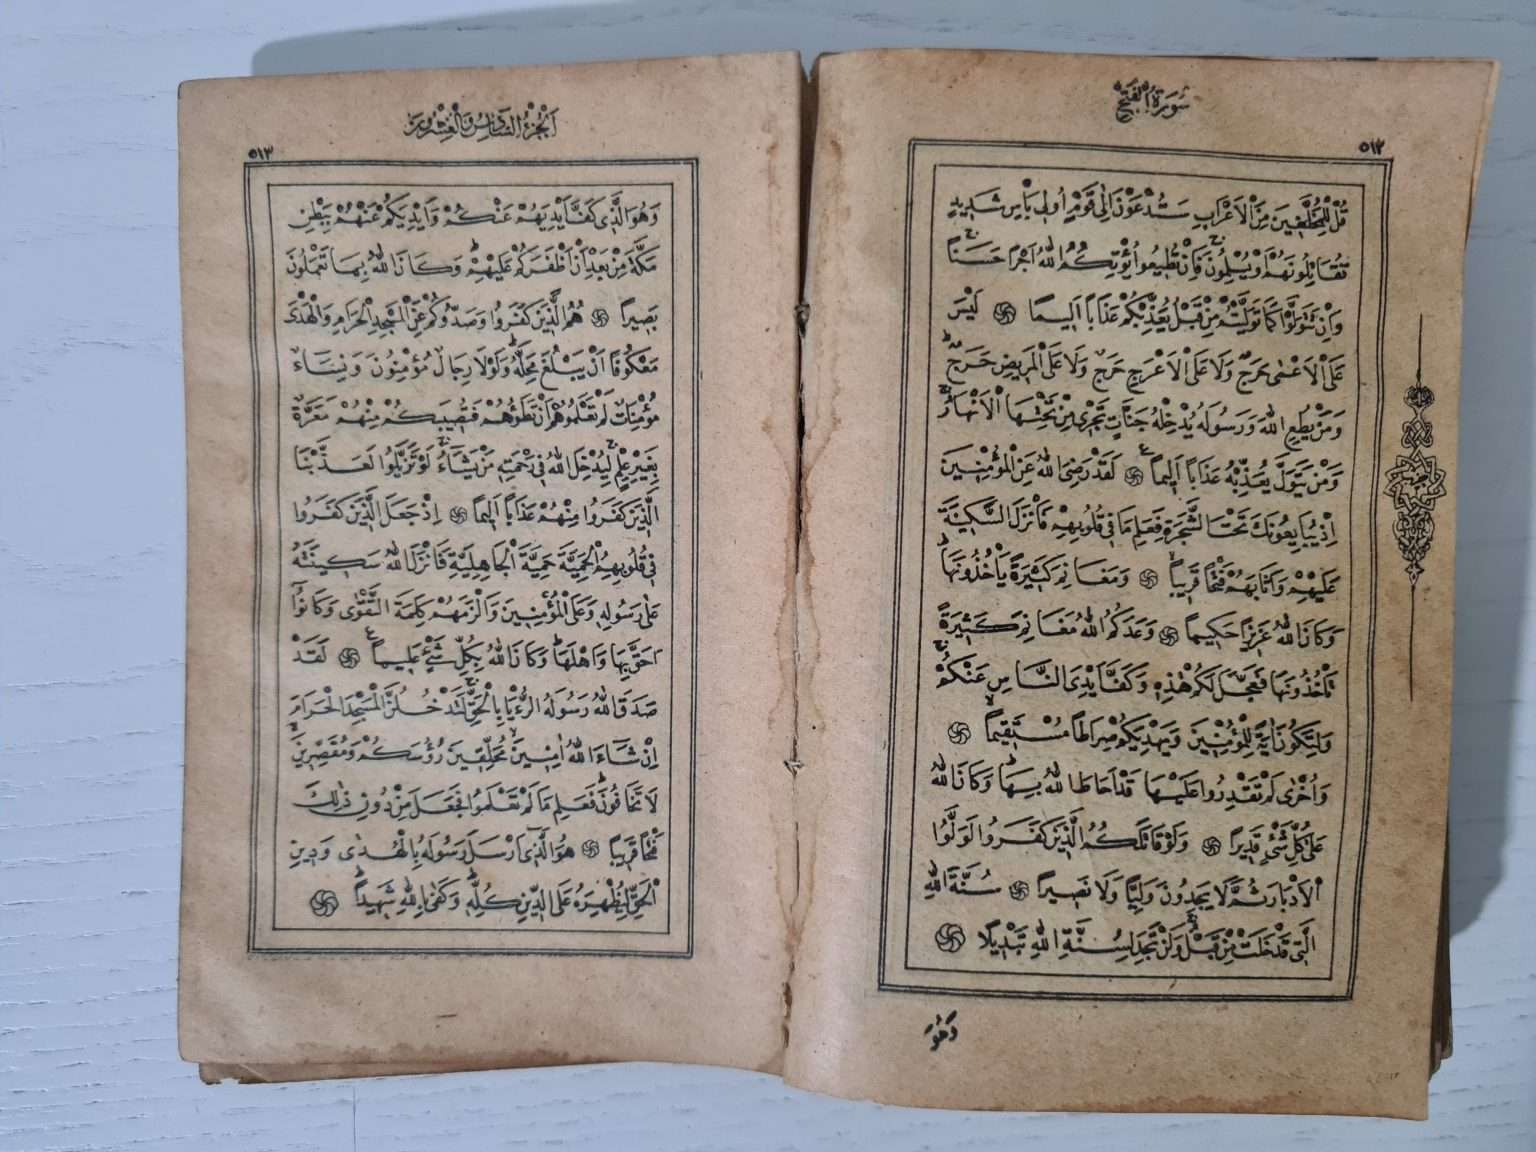 سُورَةُ الْفَتْحِ
٥١٢
قُلْ لِلْمُخَلَّفِينَ مِنَ الْاَعْرَابِ سَتُدْعَوْنَ اِلٰى قَوْمٍ اُولِى بَاْسٍ شَدِيدٍ
تُقَاتِلُونَهُمْ اَوْ يُسْلِمُونَ ج فَاِنْ تُطِيعُوا يُؤْتِكُمُ اللّٰهُ اَجْرًا حَسَنًا ج
وَاِنْ تَتَوَلَّوْا كَمَا تَوَلَّيْتُمْ مِنْ قَبْلُ يُعَذِّبْكُمْ عَذَابًا اَلِيمًا ۝ لَيْسَ
عَلَى الْاَعْمٰى حَرَجٌ وَلَا عَلَى الْاَعْرَجِ حَرَجٌ وَلَا عَلَى الْمَرِيضِ حَرَجٌ ط
وَمَنْ يُطِعِ اللّٰهَ وَرَسُولَهُ يُدْخِلْهُ جَنَّاتٍ تَجْرِى مِنْ تَحْتِهَا الْاَنْهَارُ ج
وَمَنْ يَتَوَلَّ يُعَذِّبْهُ عَذَابًا اَلِيمًا ع ۝ لَقَدْ رَضِىَ اللّٰهُ عَنِ الْمُؤْمِنِينَ
اِذْ يُبَايِعُونَكَ تَحْتَ الشَّجَرَةِ فَعَلِمَ مَا فِى قُلُوبِهِمْ فَاَنْزَلَ السَّكِينَةَ
عَلَيْهِمْ وَاَثَابَهُمْ فَتْحًا قَرِيبًا لا ۝ وَمَغَانِمَ كَثِيرَةً يَاْخُذُونَهَا ط
وَكَانَ اللّٰهُ عَزِيزًا حَكِيمًا ۝ وَعَدَكُمُ اللّٰهُ مَغَانِمَ كَثِيرَةً
تَاْخُذُونَهَا فَعَجَّلَ لَكُمْ هٰذِهِ وَكَفَّ اَيْدِىَ النَّاسِ عَنْكُمْ ج
وَلِتَكُونَ اٰيَةً لِلْمُؤْمِنِينَ وَيَهْدِيَكُمْ صِرَاطًا مُسْتَقِيمًا لا ۝
وَاُخْرٰى لَمْ تَقْدِرُوا عَلَيْهَا قَدْ اَحَاطَ اللّٰهُ بِهَا ط وَكَانَ اللّٰهُ
عَلٰى كُلِّ شَىْءٍ قَدِيرًا ۝ وَلَوْ قَاتَلَكُمُ الَّذِينَ كَفَرُوا لَوَلَّوُا
الْاَدْبَارَ ثُمَّ لَا يَجِدُونَ وَلِيًّا وَلَا نَصِيرًا ۝ سُنَّةَ اللّٰهِ
الَّتِى قَدْ خَلَتْ مِنْ قَبْلُ ج وَلَنْ تَجِدَ لِسُنَّةِ اللّٰهِ تَبْدِيلًا ۝
وَهُوَ
اَلْجُزْءُ السَّادِسُ وَالْعِشْرُونَ
٥١٣
وَهُوَ الَّذِى كَفَّ اَيْدِيَهُمْ عَنْكُمْ وَاَيْدِيَكُمْ عَنْهُمْ بِبَطْنِ
مَكَّةَ مِنْ بَعْدِ اَنْ اَظْفَرَكُمْ عَلَيْهِمْ ط وَكَانَ اللّٰهُ بِمَا تَعْمَلُونَ
بَصِيرًا ۝ هُمُ الَّذِينَ كَفَرُوا وَصَدُّوكُمْ عَنِ الْمَسْجِدِ الْحَرَامِ وَالْهَدْىَ
مَعْكُوفًا اَنْ يَبْلُغَ مَحِلَّهُ ط وَلَوْلَا رِجَالٌ مُؤْمِنُونَ وَنِسَاءٌ
مُؤْمِنَاتٌ لَمْ تَعْلَمُوهُمْ اَنْ تَطَؤُهُمْ فَتُصِيبَكُمْ مِنْهُمْ مَعَرَّةٌ
بِغَيْرِ عِلْمٍ ج لِيُدْخِلَ اللّٰهُ فِى رَحْمَتِهِ مَنْ يَشَاءُ ج لَوْ تَزَيَّلُوا لَعَذَّبْنَا
الَّذِينَ كَفَرُوا مِنْهُمْ عَذَابًا اَلِيمًا ۝ اِذْ جَعَلَ الَّذِينَ كَفَرُوا
فِى قُلُوبِهِمُ الْحَمِيَّةَ حَمِيَّةَ الْجَاهِلِيَّةِ فَاَنْزَلَ اللّٰهُ سَكِينَتَهُ
عَلٰى رَسُولِهِ وَعَلَى الْمُؤْمِنِينَ وَاَلْزَمَهُمْ كَلِمَةَ التَّقْوٰى وَكَانُوا
اَحَقَّ بِهَا وَاَهْلَهَا ط وَكَانَ اللّٰهُ بِكُلِّ شَىْءٍ عَلِيمًا ع ۝ لَقَدْ
صَدَقَ اللّٰهُ رَسُولَهُ الرُّءْيَا بِالْحَقِّ ج لَتَدْخُلُنَّ الْمَسْجِدَ الْحَرَامَ
اِنْ شَاءَ اللّٰهُ اٰمِنِينَ لا مُحَلِّقِينَ رُؤُسَكُمْ وَمُقَصِّرِينَ لا
لَا تَخَافُونَ ط فَعَلِمَ مَا لَمْ تَعْلَمُوا فَجَعَلَ مِنْ دُونِ ذٰلِكَ
فَتْحًا قَرِيبًا ۝ هُوَ الَّذِى اَرْسَلَ رَسُولَهُ بِالْهُدٰى وَدِينِ
الْحَقِّ لِيُظْهِرَهُ عَلَى الدِّينِ كُلِّهِ ط وَكَفٰى بِاللّٰهِ شَهِيدًا ط ۝